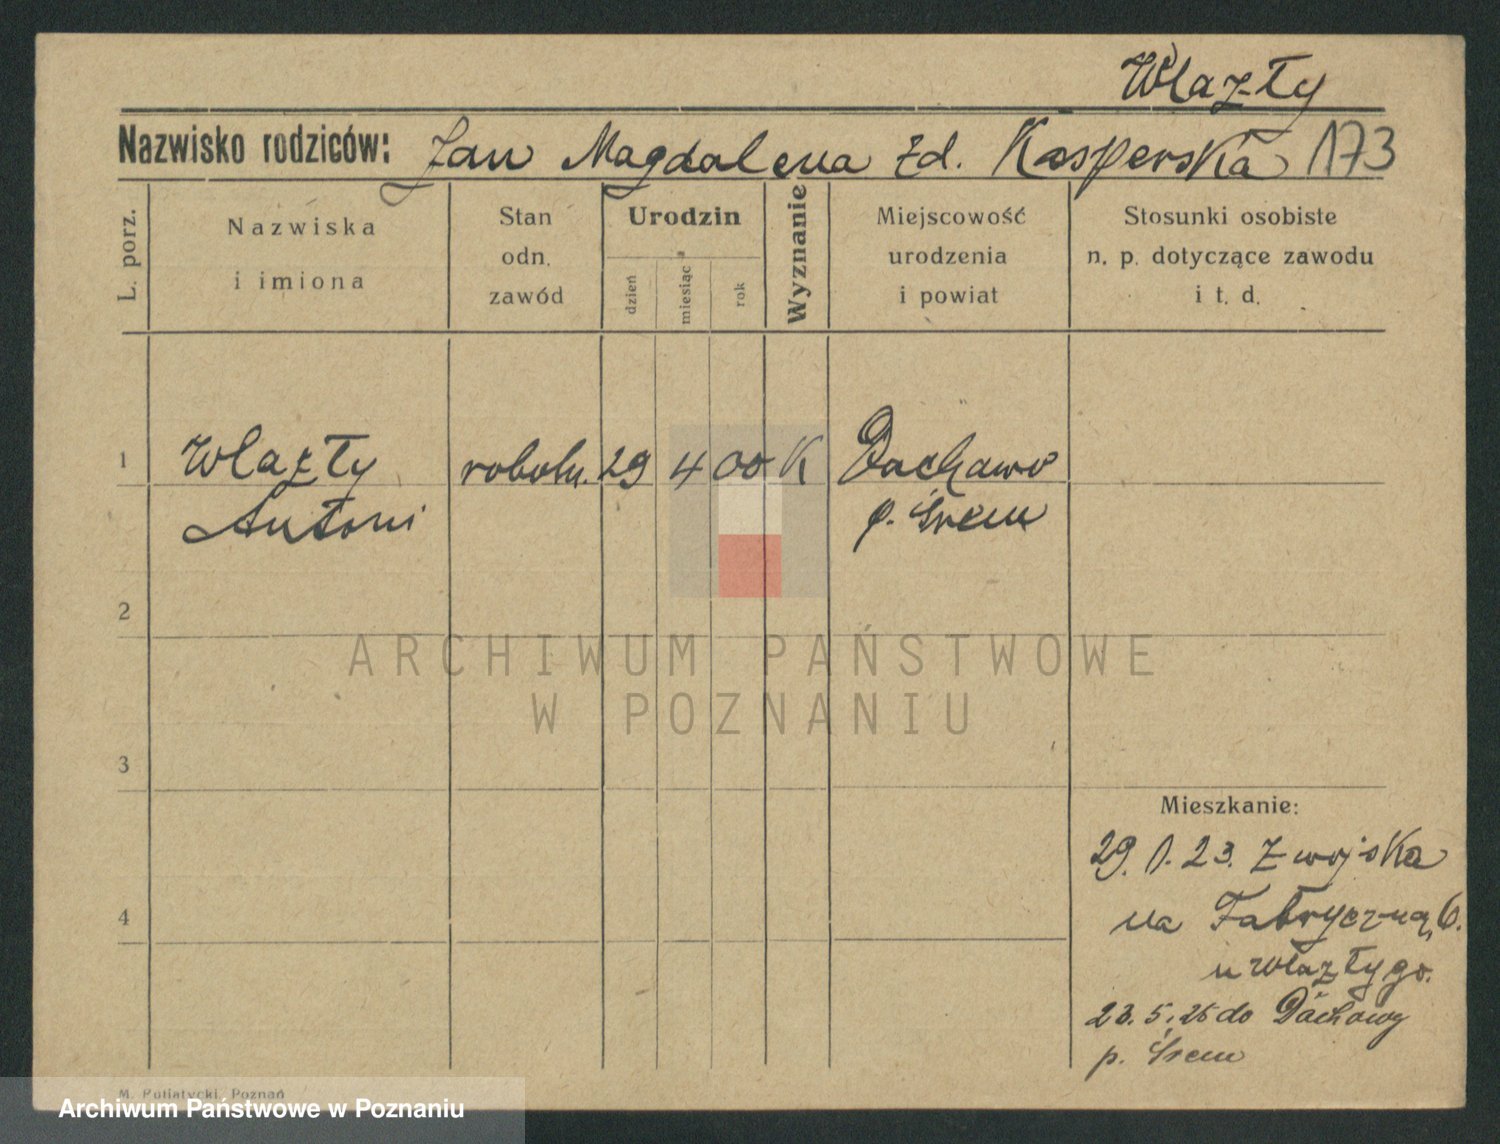 Wlazły
Nazwisko rodziców: Jan Magdalena zd. Kasperska 173
L. porz.
Nazwiska
i imiona
Stan
odn.
zawód
Urodzin
dzień
miesiąc
rok
Wyznanie
Miejscowość
urodzenia
i powiat
Stosunki osobiste
n. p. dotyczące zawodu
i t. d.
1 Wlazły robotn. 29 4 00 K Dachawo
Antoni p. Śrem
2
3
4
Mieszkanie:
29. 1. 23. Z wojska
na Fabryczną 6.
u Wlazłygo.
23. 5. 25 do Dachowy
p. Śrem
M. Putiatycki, Poznań
ARCHIWUM PAŃSTWOWE
W POZNANIU
Archiwum Państwowe w Poznaniu